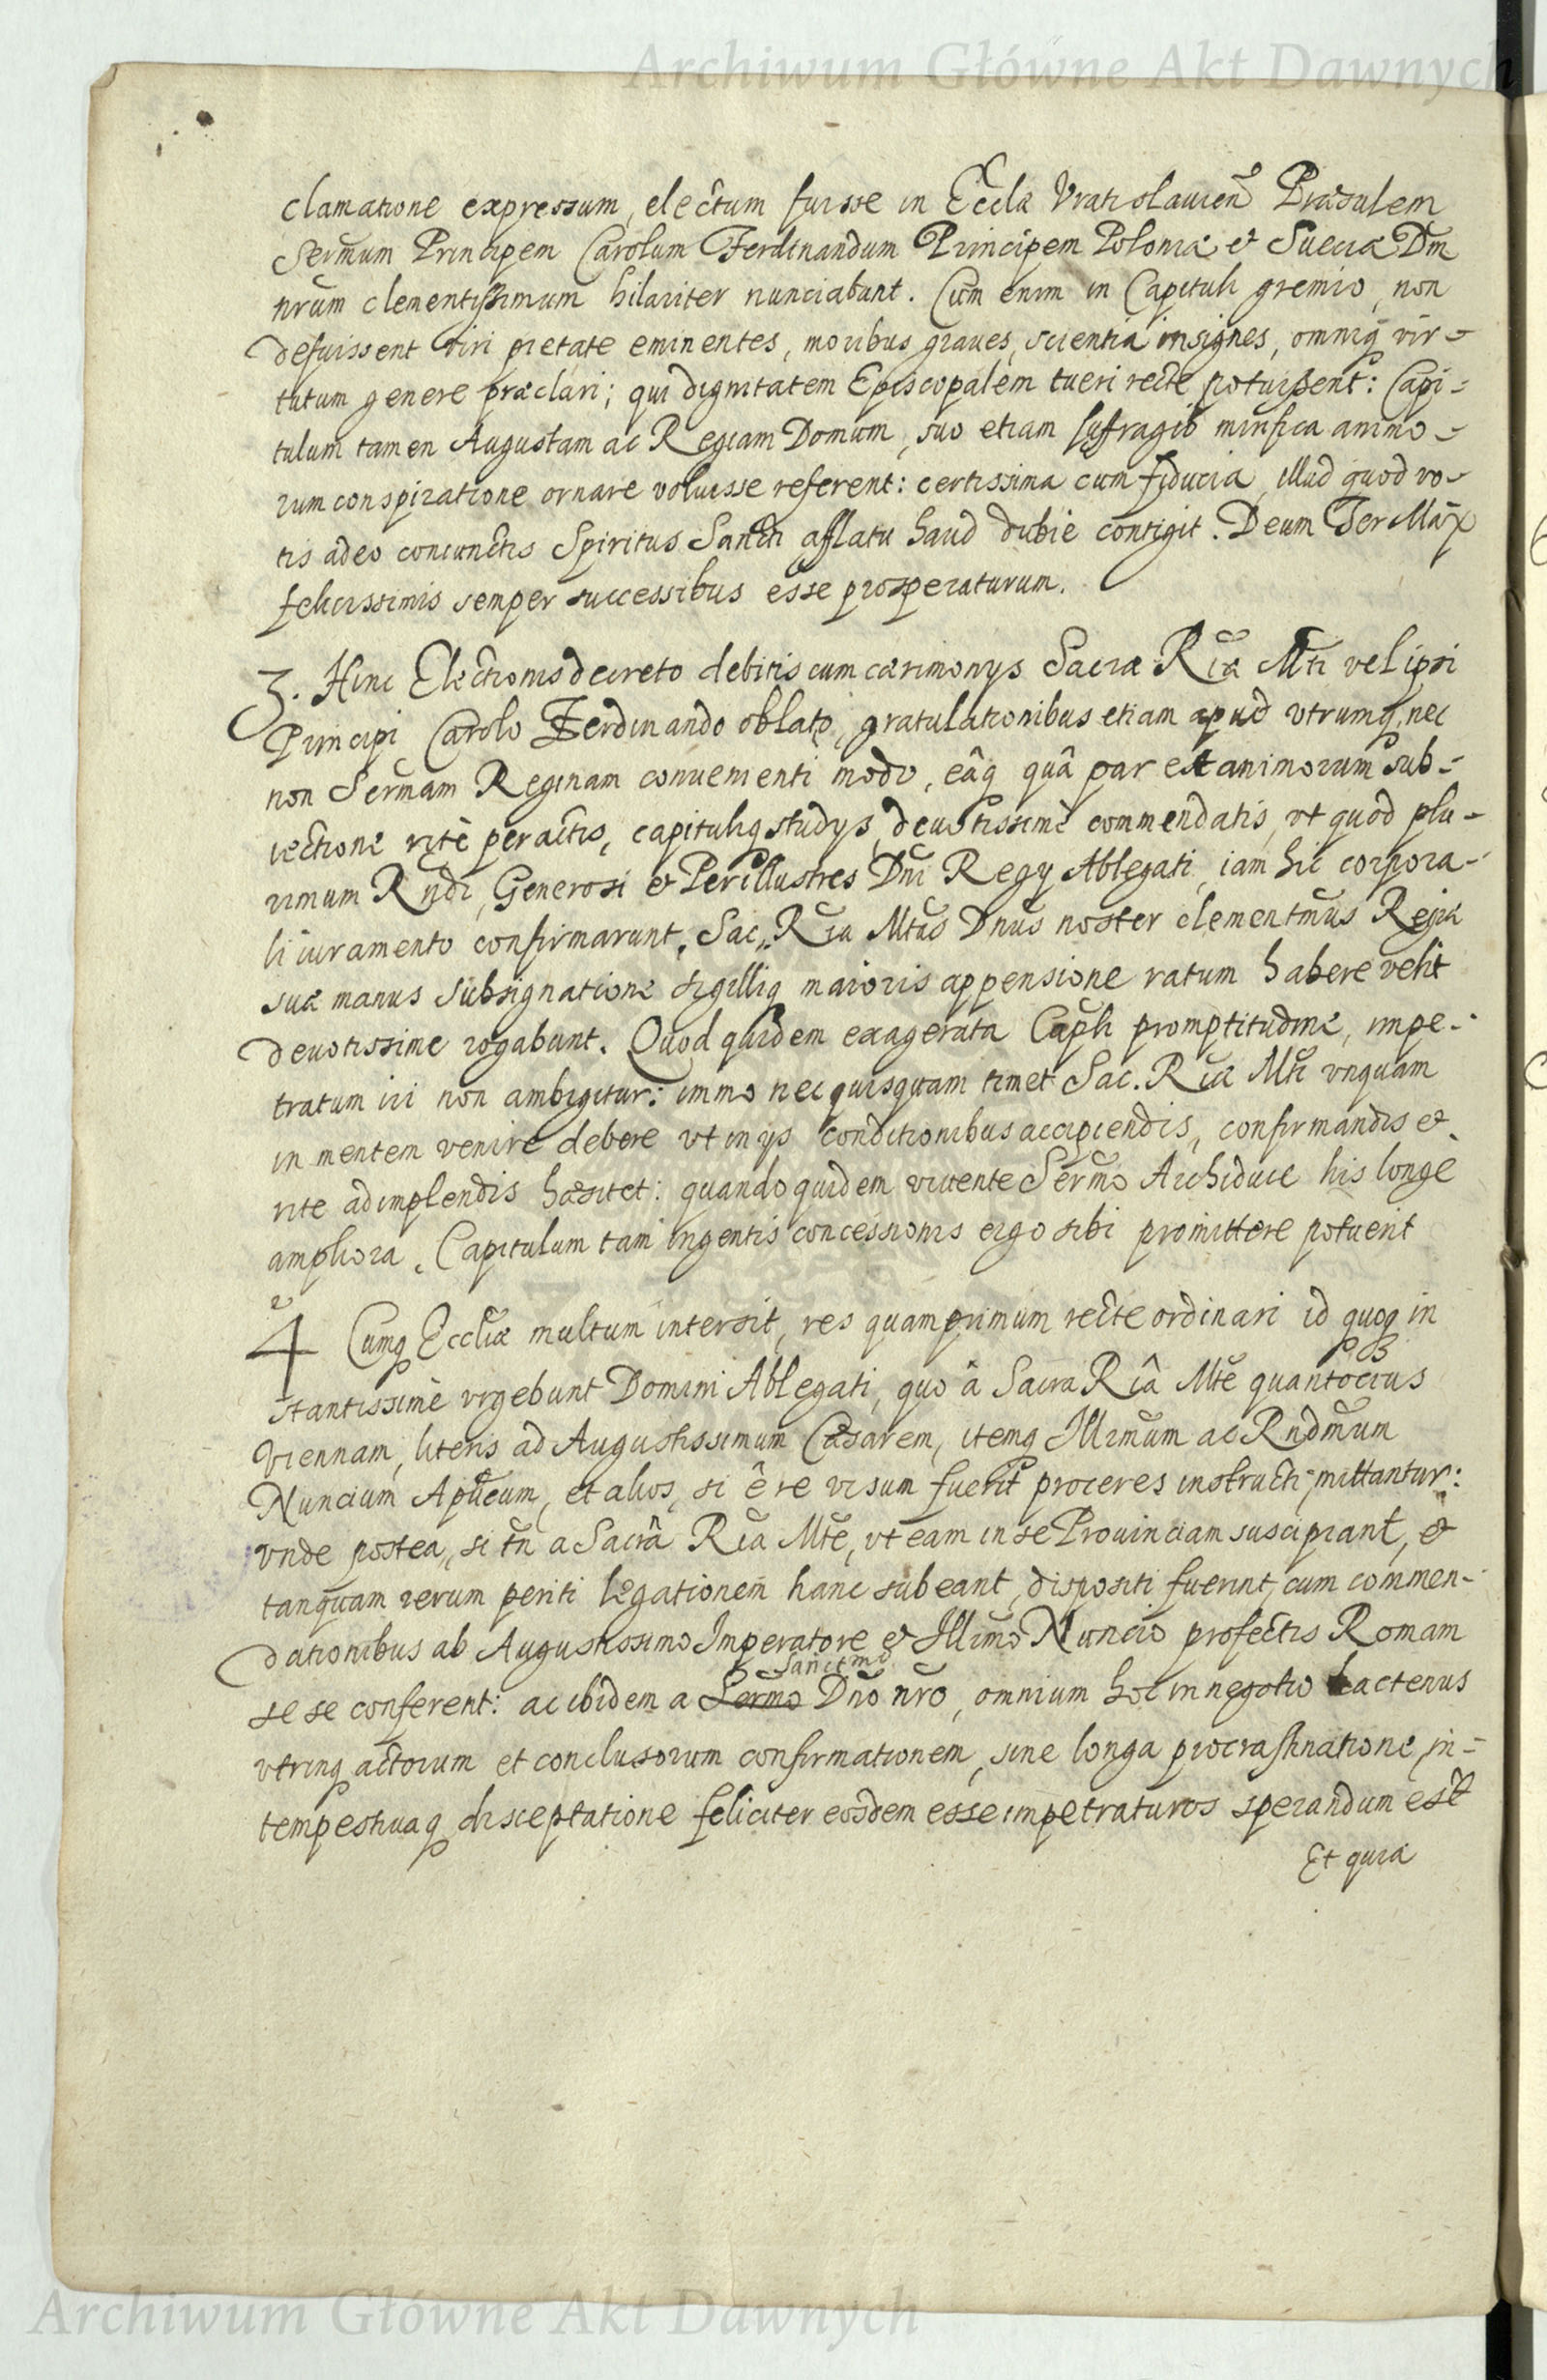 Archiwum Główne Akt Dawnych
clamatione expressum, electum fuisse in Eccla Vratislauien Præsulem
Sermum Principem Carolum Ferdinandum Principem Poloniæ et Sueciæ Dnm
nrum clementissimum hilariter nunciabunt. Cum enim in Capituli gremio, non
defuissent viri pietate eminentes, moribus graues, scientia insignes, omniq vir-
tutum genere præclari; qui dignitatem Episcopalem tueri recte potuissent: Capi-
tulum tamen Augustam ac Regiam Domum, suo etiam suffragio mirifica animo-
rum conspiratione ornare voluisse referent: certissima cum fiducia, illud quod vo-
tis adeo coniunctis Spiritus Sancti afflatu haud dubie contigit. Deum Ter Max
felicissimis semper successibus esse prosperaturum.
3. Hinc Electionis decreto debitis cum cærimonys Sacræ Riæ Mti vel ipsi
Principi Carolo Ferdinando oblato, gratulationibus etiam apud vtrumq, nec
non Sermam Reginam conuenienti modo, eâq quâ par est animorum sub-
iectione ritè peractis, capituliq studys deuotissimè commendatis, vt quod plu-
rimum Rndi, Generosi et Perillustres Dni Regy Ablegati, iam hic corpora-
li iuramento confirmarunt, Sac. Ria Mtas Dnus noster clementmus Regia
suæ manus subsignatione sigilliq maioris appensione ratum habere velit
deuotissime rogabunt. Quod quidem exagerata Capli promptitudine, impe-
tratum iri non ambigitur: immo nec quisquam timet Sac. Riæ Mti vnquam
in mentem venire debere vt in ys conditionibus accipiendis, confirmandis et
rite adimplendis hæsitet: quandoquidem viuente Sermo Archiduce his longe
ampliora, Capitulum tam ingentis concessionis ergo sibi promittere potuerit
4 Cumq Eccliæ multum intersit, res quamprimum recte ordinari id quoq in
stantissimè vrgebunt Domini Ablegati, quo â Sacra Riâ Mte quantocius
Viennam, literis ad Augustissimum Cæsarem, itemq Illmum ac Rndmum
Nuncium Aplicum, et alios, si ê re visum fuerit proceres instructi mittantur:
vnde postea, si tn a Sacrâ Ria Mte, vt eam in se Prouinciam suscipiant, et
tanquam rerum periti legationem hanc subeant, dispositi fuerint, cum commen-
dationibus ab Augustissimo Imperatore et Illimo Nuncio profectis Romam
sanctmo
se se conferent: ac ibidem a Sermo Dno nro, omnium hoc in negotio hactenus
vtrinq actorum et conclusorum confirmationem, sine longa procrastinatione, in-
tempestiuaq disceptatione feliciter eosdem esse impetraturos sperandum est
Et quia
Archiwum Główne Akt Dawnych